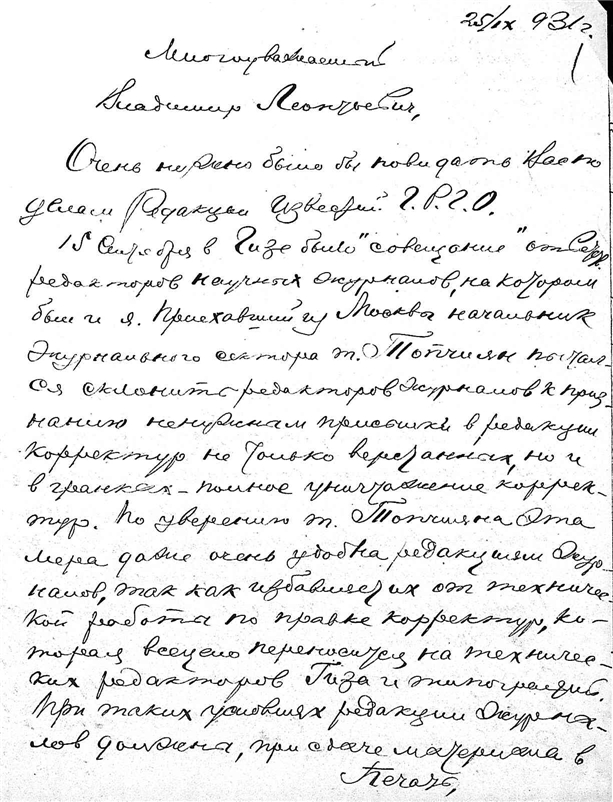 25/IX 931 г.
Многоуважаемый
Владимир Леонтьевич,
Очень нужно было бы повидать Вас по
делам Редакции Известий Г.Р.Г.О.
15 Сентября в Гизе было "совещание" отв.
редакторов научных журналов, на котором
был и я. Приехавший из Москвы начальник
Журнального сектора т. Топчиян пытал-
ся склонить редакторов журналов к приз-
нанию ненужным присылки в редакции
корректур не только верстанных, но и
в гранках - полное уничтожение коррек-
тур. По уверению т. Топчияна эта
мера даже очень удобна редакциям жур-
налов, так как избавляет их от техничес-
кой работы по правке корректур, ко-
торая всецело переносится на техничес-
ких редакторов Гиза и типографий.
При таких условиях редакции журна-
лов должны, при сдаче материала в
печать,